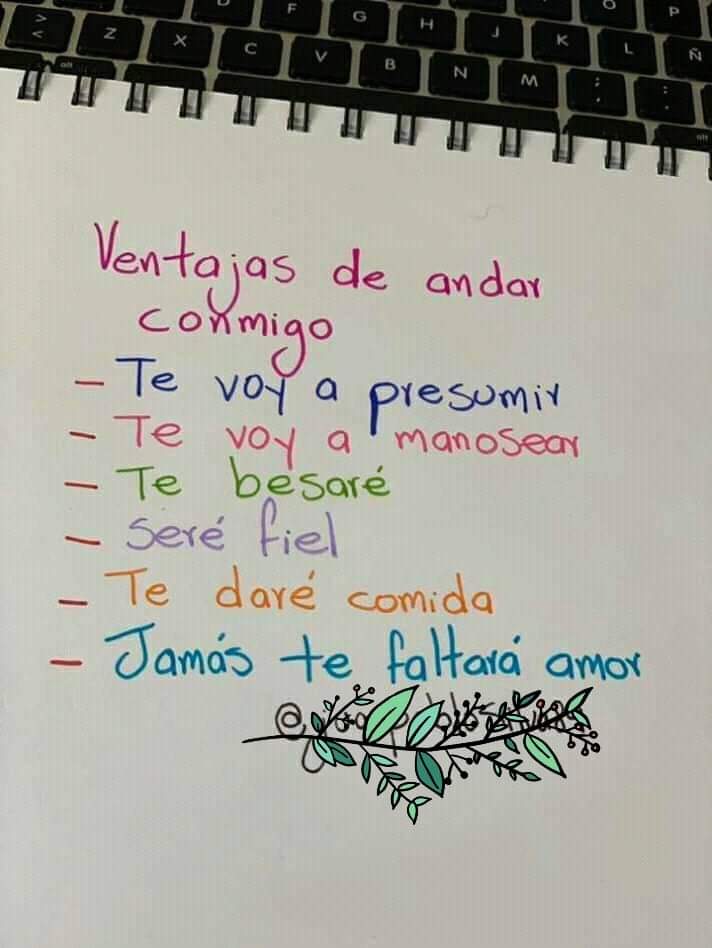 > <
Z
X
C
V
B
N
M
; ,
: .
alt
alt
D
F
G
H
J
K
L
Ñ
O
P
Ventajas de andar
conmigo
- Te voy a presumir
- Te voy a manosear
- Te besaré
- Seré fiel
- Te daré comida
- Jamás te faltará amor